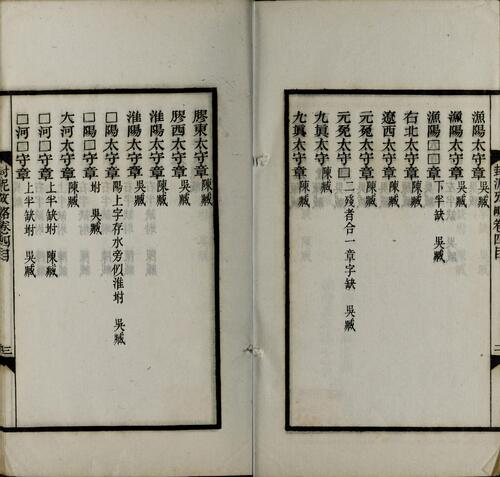 漁陽太守章 吳臧
漁陽太守章 吳臧
漁陽□□章 下半缺 吳臧
右北太守章 陳臧
遼西太守章 陳臧
元冤太守章 陳臧
元冤太守□ 二殘者合一章字缺 吳臧
九真太守章 陳臧
九真太守章 陳臧
封泥攷略卷四目 二
膠東太守章 陳臧
膠西太守章 吳臧
淮陽太守章 陳臧
淮陽太守章 吳臧
□陽太守章 陽上字存水旁似淮坿 吳臧
□陽□守章 坿 吳臧
大河太守章 陳臧
□河□守章 上半缺坿 陳臧
□河□守章 上半缺坿 吳臧
封泥攷略卷四目 三